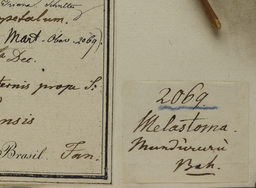 petalum.
Mart. Obs. 2069.
Dec.
ternis prope S.
ensis
Brasil. Jan.
2069
Melastoma.
Mundururù
Bah.